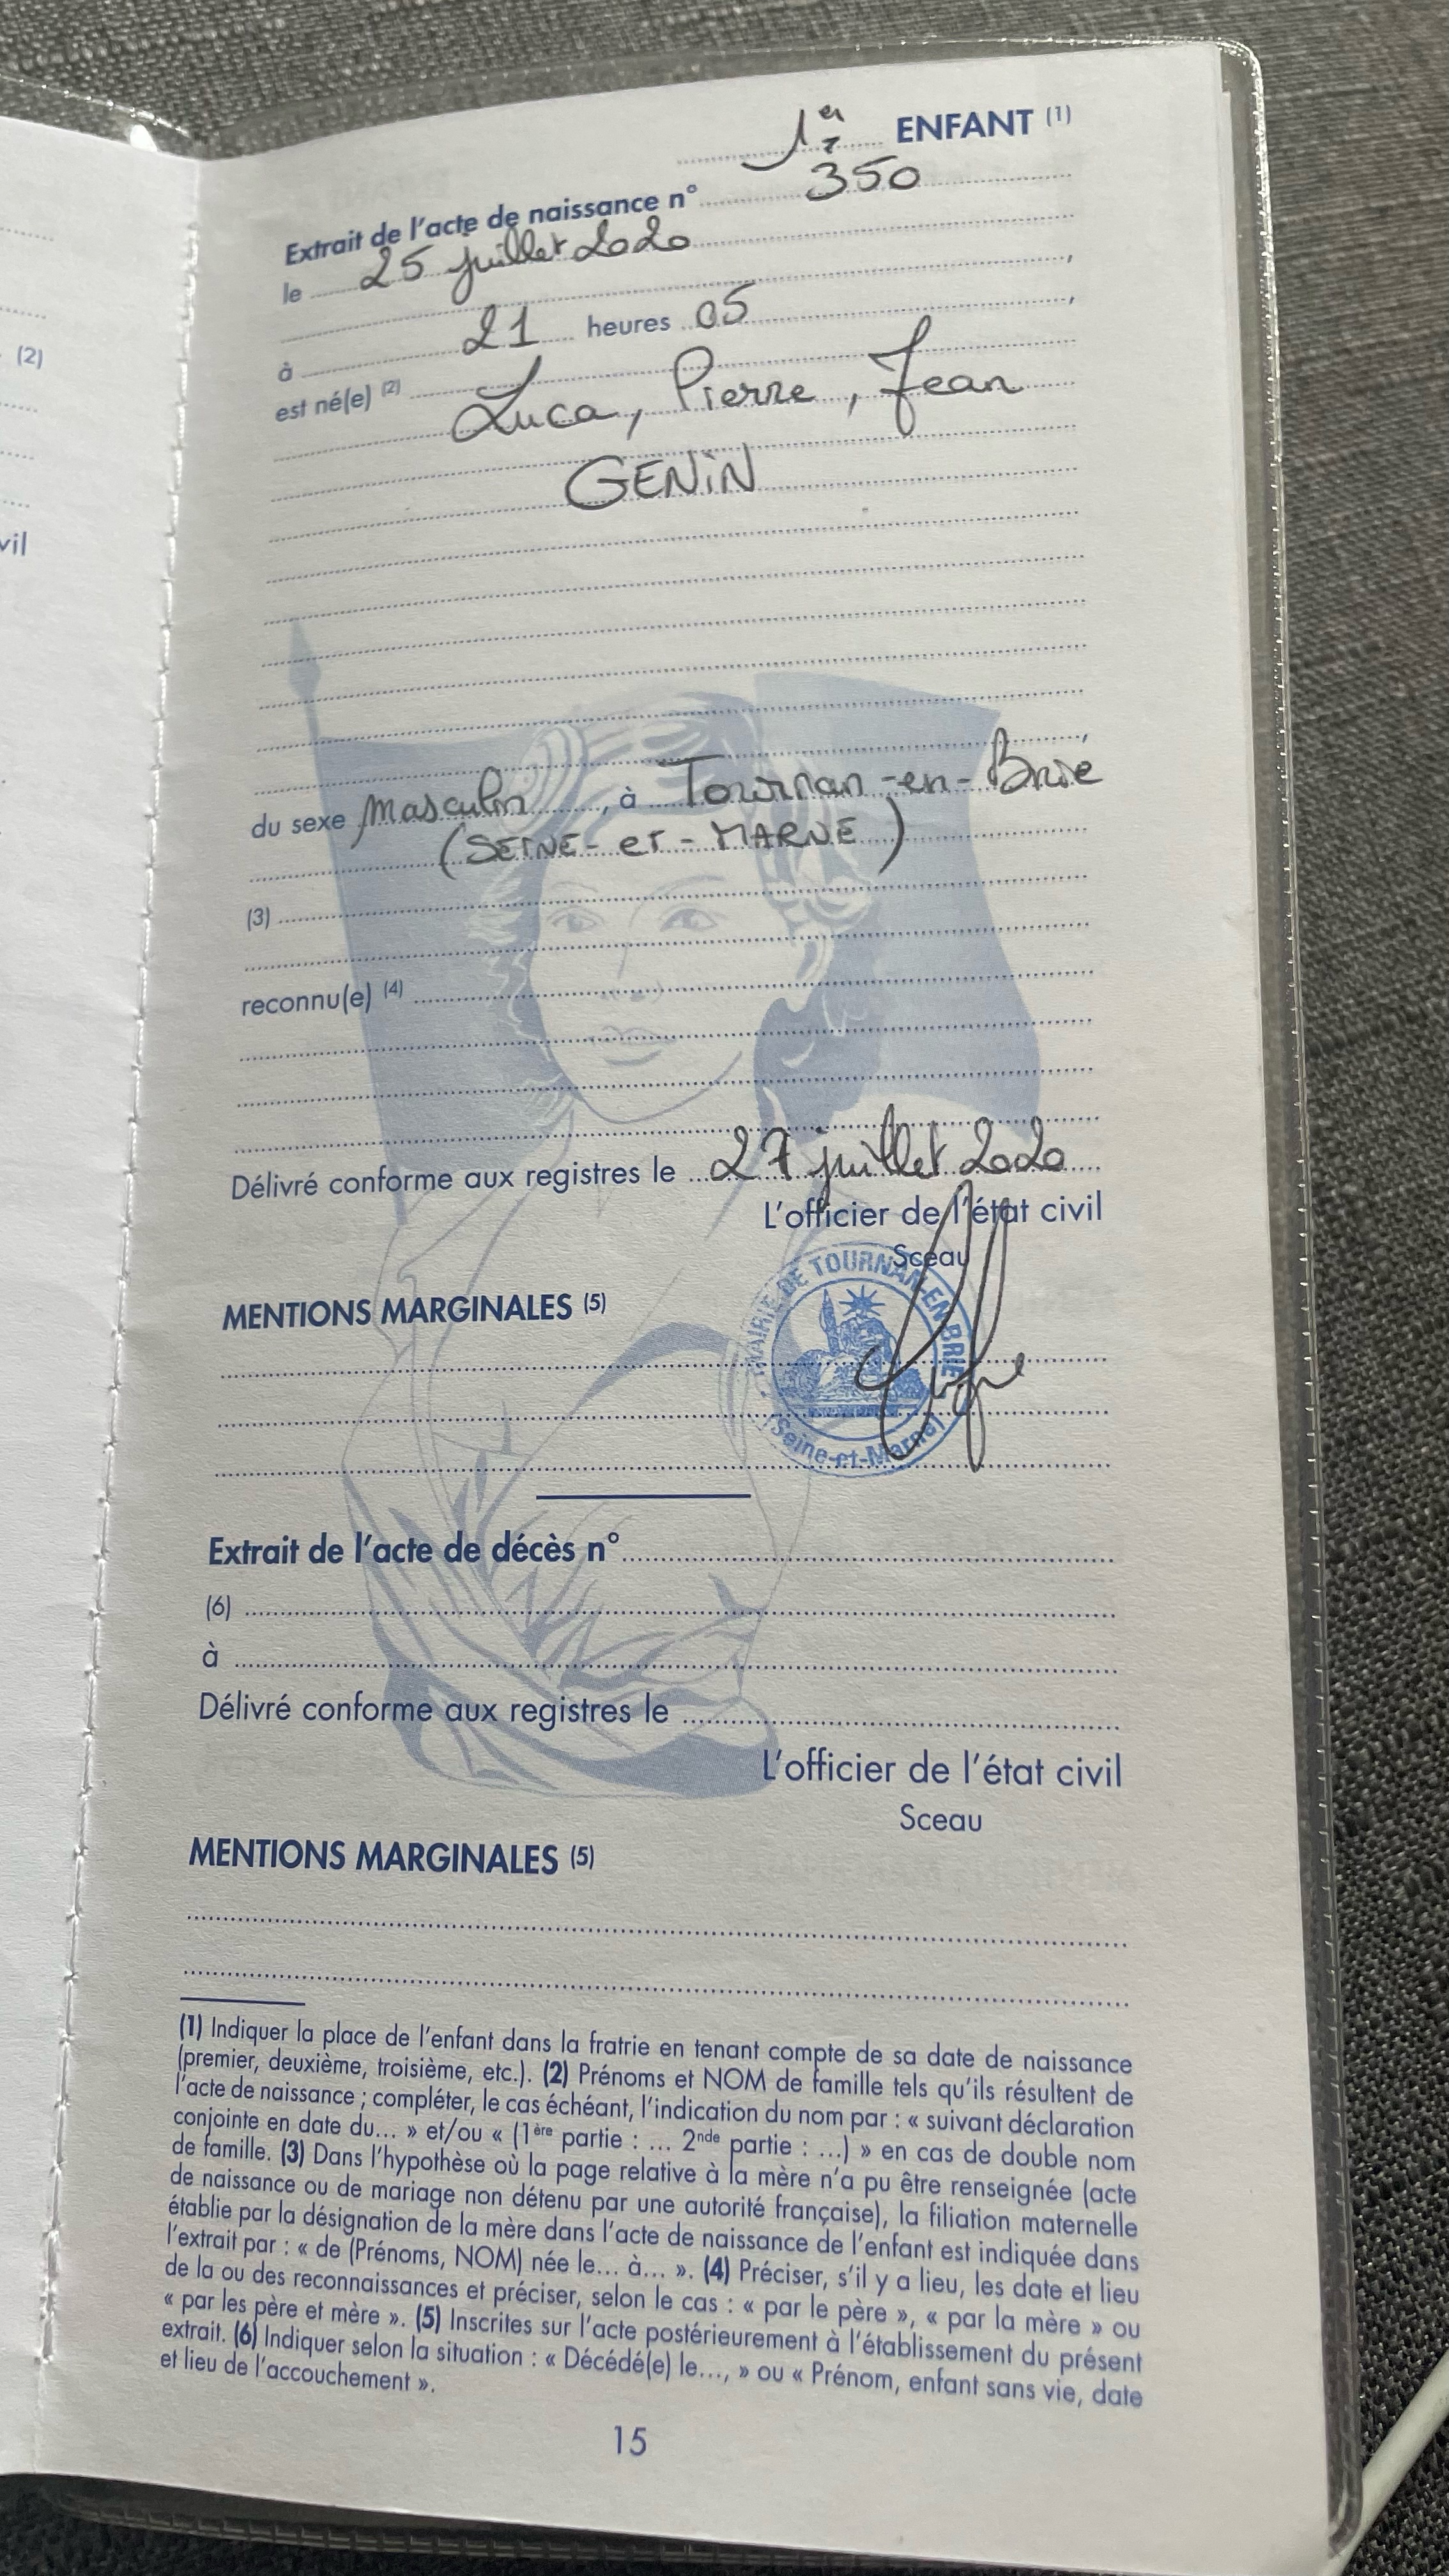 (2)
vil
1er ENFANT (1)
Extrait de l'acte de naissance n° 350
le 25 juillet 2020
,
à 21 heures 05 ,
est né(e) (2)
Luca, Pierre, Jean
GENIN
,
du sexe masculin, à Tournan-en-Brie
(SEINE-et-MARNE)
(3)
reconnu(e) (4)
Délivré conforme aux registres le 27 juillet 2020
L'officier de l'état civil
Sceau
MAIRIE DE TOURNAN-EN-BRIE
(Seine-et-Marne)
MENTIONS MARGINALES (5)
Extrait de l'acte de décès n°
(6)
à
Délivré conforme aux registres le
L'officier de l'état civil
Sceau
MENTIONS MARGINALES (5)
(1) Indiquer la place de l'enfant dans la fratrie en tenant compte de sa date de naissance
(premier, deuxième, troisième, etc.). (2) Prénoms et NOM de famille tels qu'ils résultent de
l'acte de naissance ; compléter, le cas échéant, l'indication du nom par : « suivant déclaration
conjointe en date du... » et/ou « (1ère partie : ... 2nde partie : ...) » en cas de double nom
de famille. (3) Dans l'hypothèse où la page relative à la mère n'a pu être renseignée (acte
de naissance ou de mariage non détenu par une autorité française), la filiation maternelle
établie par la désignation de la mère dans l'acte de naissance de l'enfant est indiquée dans
l'extrait par : « de (Prénoms, NOM) née le... à... ». (4) Préciser, s'il y a lieu, les date et lieu
de la ou des reconnaissances et préciser, selon le cas : « par le père », « par la mère » ou
« par les père et mère ». (5) Inscrites sur l'acte postérieurement à l'établissement du présent
extrait. (6) Indiquer selon la situation : « Décédé(e) le..., » ou « Prénom, enfant sans vie, date
et lieu de l'accouchement ».
15